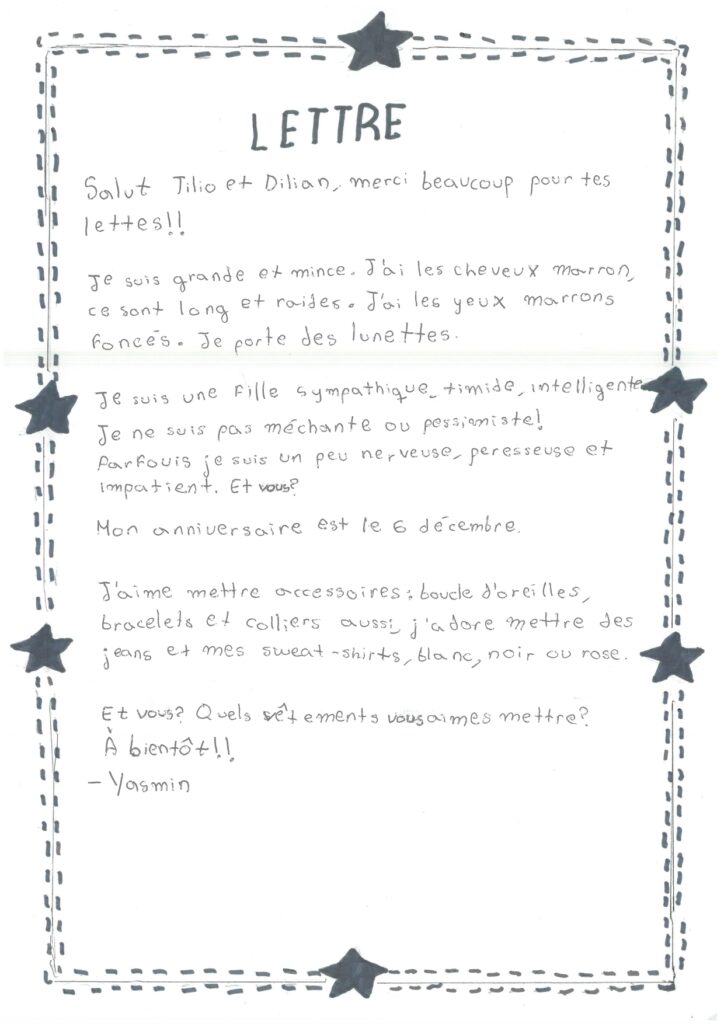 LETTRE
Salut Tilio et Dilian, merci beaucoup pour tes
lettes!!
Je suis grande et mince. J'ai les cheveux marron,
ce sont long et raides. J'ai les yeux marrons
foncés. Je porte des lunettes.
Je suis une fille sympathique, timide, intelligente
Je ne suis pas méchante ou pessimiste!
Parfouis je suis un peu nerveuse, peresseuse et
impatient. Et vous?
Mon anniversaire est le 6 décembre.
J'aime mettre accessoires: boucle d'oreilles,
bracelets et colliers aussi, j'adore mettre des
jeans et mes sweat-shirts, blanc, noir ou rose.
Et vous? Quels vêtements vous aimes mettre?
À bientôt!!
- Yasmin